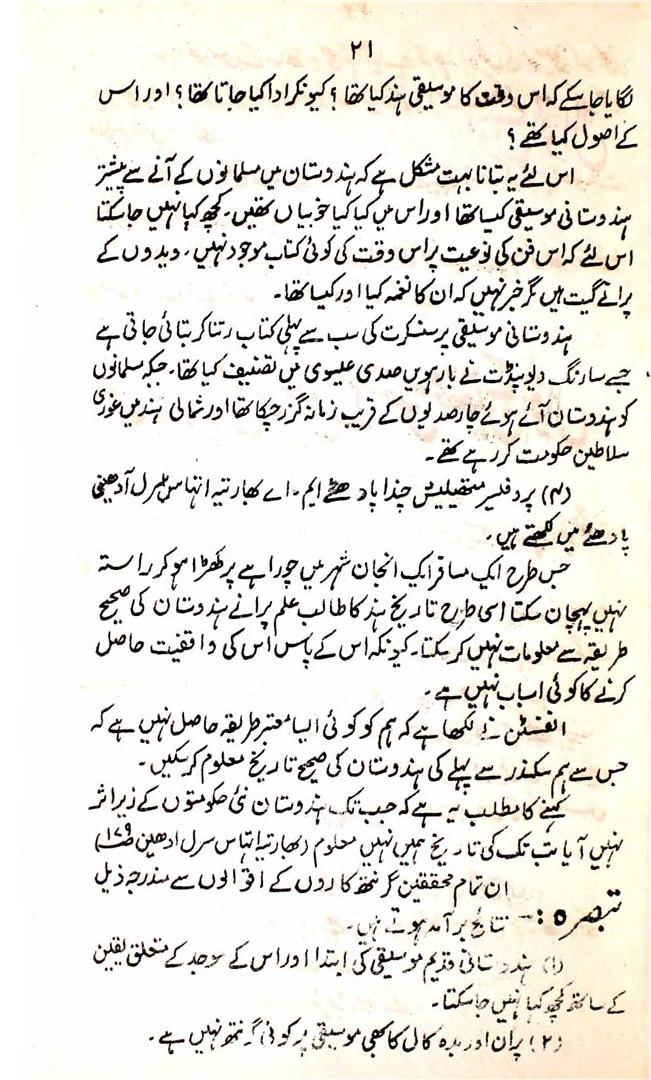 ۲۱
لگایا جا سکے کہ اس وقت کا موسیقی ہند کیا تھا؟ کیونکر ادا کیا جاتا تھا؟ اور اس
کے اصول کیا تھے؟
اس لئے یہ بتانا بہت مشکل ہے کہ ہندوستان میں مسلمانوں کے آنے سے پیشتر
ہندوستانی موسیقی کیسا تھا اور اس میں کیا کیا خوبیاں تھیں۔ کچھ کہا نہیں جا سکتا
اس لئے کہ اس فن کی نوعیت پر اس وقت کی کوئی کتاب موجود نہیں۔ ویدوں کے
پرانے گیت ہیں مگر خبر نہیں کہ ان کا نغمہ کیا اور کیسا تھا۔
ہندوستانی موسیقی پر سنسکرت کی سب سے پہلی کتاب رتناکر بتائی جاتی ہے
جسے سارنگ دیو پنڈت نے بارہویں صدی عیسوی میں تصنیف کیا تھا۔ جبکہ مسلمانوں
کو ہندوستان آئے ہوئے چار صدیوں کے قریب زمانہ گزر چکا تھا اور شمالی ہند میں غوری
سلاطین حکومت کر رہے تھے۔
(۴) پروفیسر چندا پادھئے ایم۔ اے بھارتیہ انتہاس سرل آدھینی
پادھئے میں لکھتے ہیں۔
جس طرح ایک مسافر ایک انجان شہر میں چوراہے پر کھڑا ہو کر راستہ
نہیں پہچان سکتا اسی طرح تاریخ ہند کا طالب علم پرانے ہندوستان کی صحیح
طریقہ سے معلومات نہیں کر سکتا۔ کیونکہ اس کے پاس اس کی واقفیت حاصل
کرنے کا کوئی اسباب نہیں ہے۔
الفنسٹن نے لکھا ہے کہ ہم کو کوئی ایسا معتبر طریقہ حاصل نہیں ہے کہ
جس سے ہم سکندر سے پہلے کی ہندوستان کی صحیح تاریخ معلوم کر سکیں۔
کہنے کا مطلب یہ ہے کہ جب تک ہندوستان نئی حکومتوں کے زیر اثر
نہیں آیا تب تک کی تاریخ ہمیں نہیں معلوم (بھارتیہ انتہاس سرل ادھین ص۱۷۹)
تبصرہ:- ان تمام محققین گرنتھ کاروں کے اقوالوں سے مندرجہ ذیل
نتائج برآمد ہوتے ہیں۔
(۱) ہندوستانی قدیم موسیقی کی ابتدا اور اس کے موجد کے متعلق یقین
کے ساتھ کچھ کہا نہیں جا سکتا۔
(۲) پران اور بدھ کال کا بھی موسیقی پر کوئی گرنتھ نہیں ہے۔